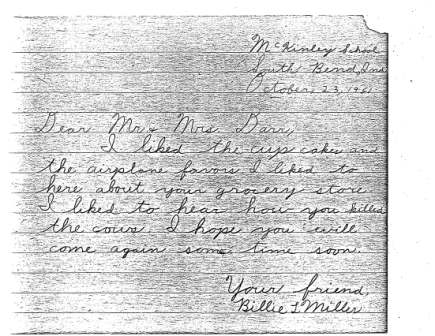 McKinley School
South Bend, Ind
October 23, 19
Dear Mr & Mrs Darr,
I liked the cup cakes and
the airplane favors I liked to
here about your grocery store
I liked to hear how you killed
the cows. I hope you will
come again some time soon.
Your friend,
Billie L Miller